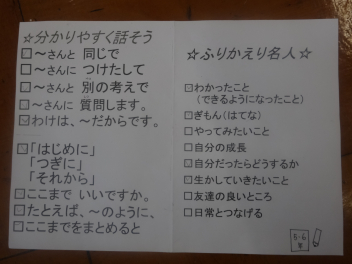 ☆分かりやすく話そう
□～さんと 同じで
□～さんに つけたして
□～さんと 別の考えで
□～さんに 質問します。
□わけは、～だからです。
□「はじめに」
「つぎに」
「それから」
□ここまで いいですか。
□たとえば、～のように、
□ここまでをまとめると
☆ふりかえり名人☆
□わかったこと
（できるようになったこと）
□ぎもん（はてな）
□やってみたいこと
□自分の成長
□自分だったらどうするか
□生かしていきたいこと
□友達の良いところ
□日常とつなげる
5・6
年